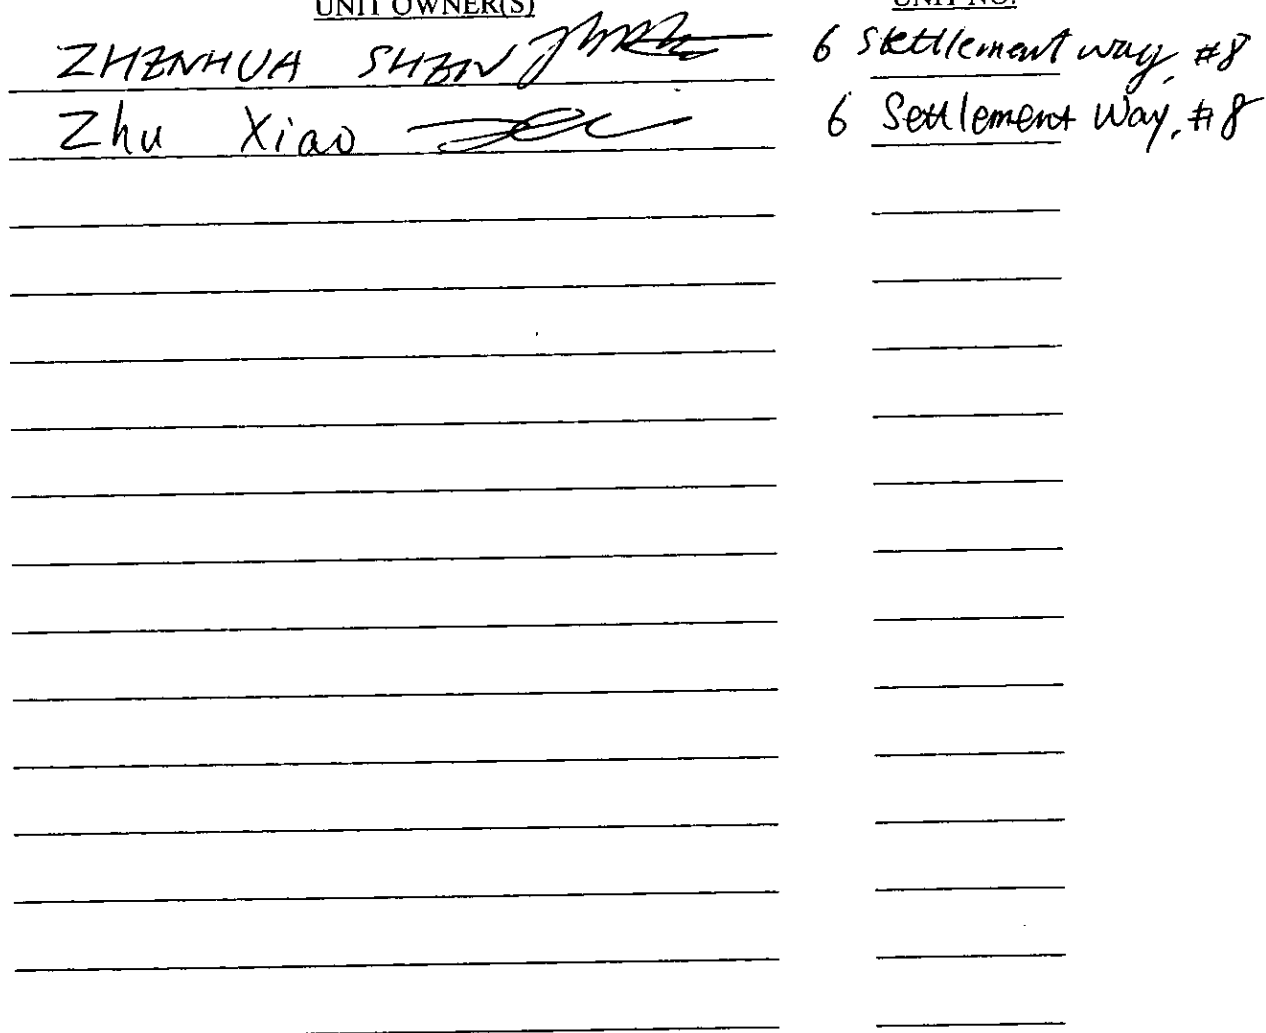 UNIT OWNER(S) UNIT NO.
ZHENHUA SHEN 6 Settlement way, #8
Zhu Xiao 6 Settlement Way, #8